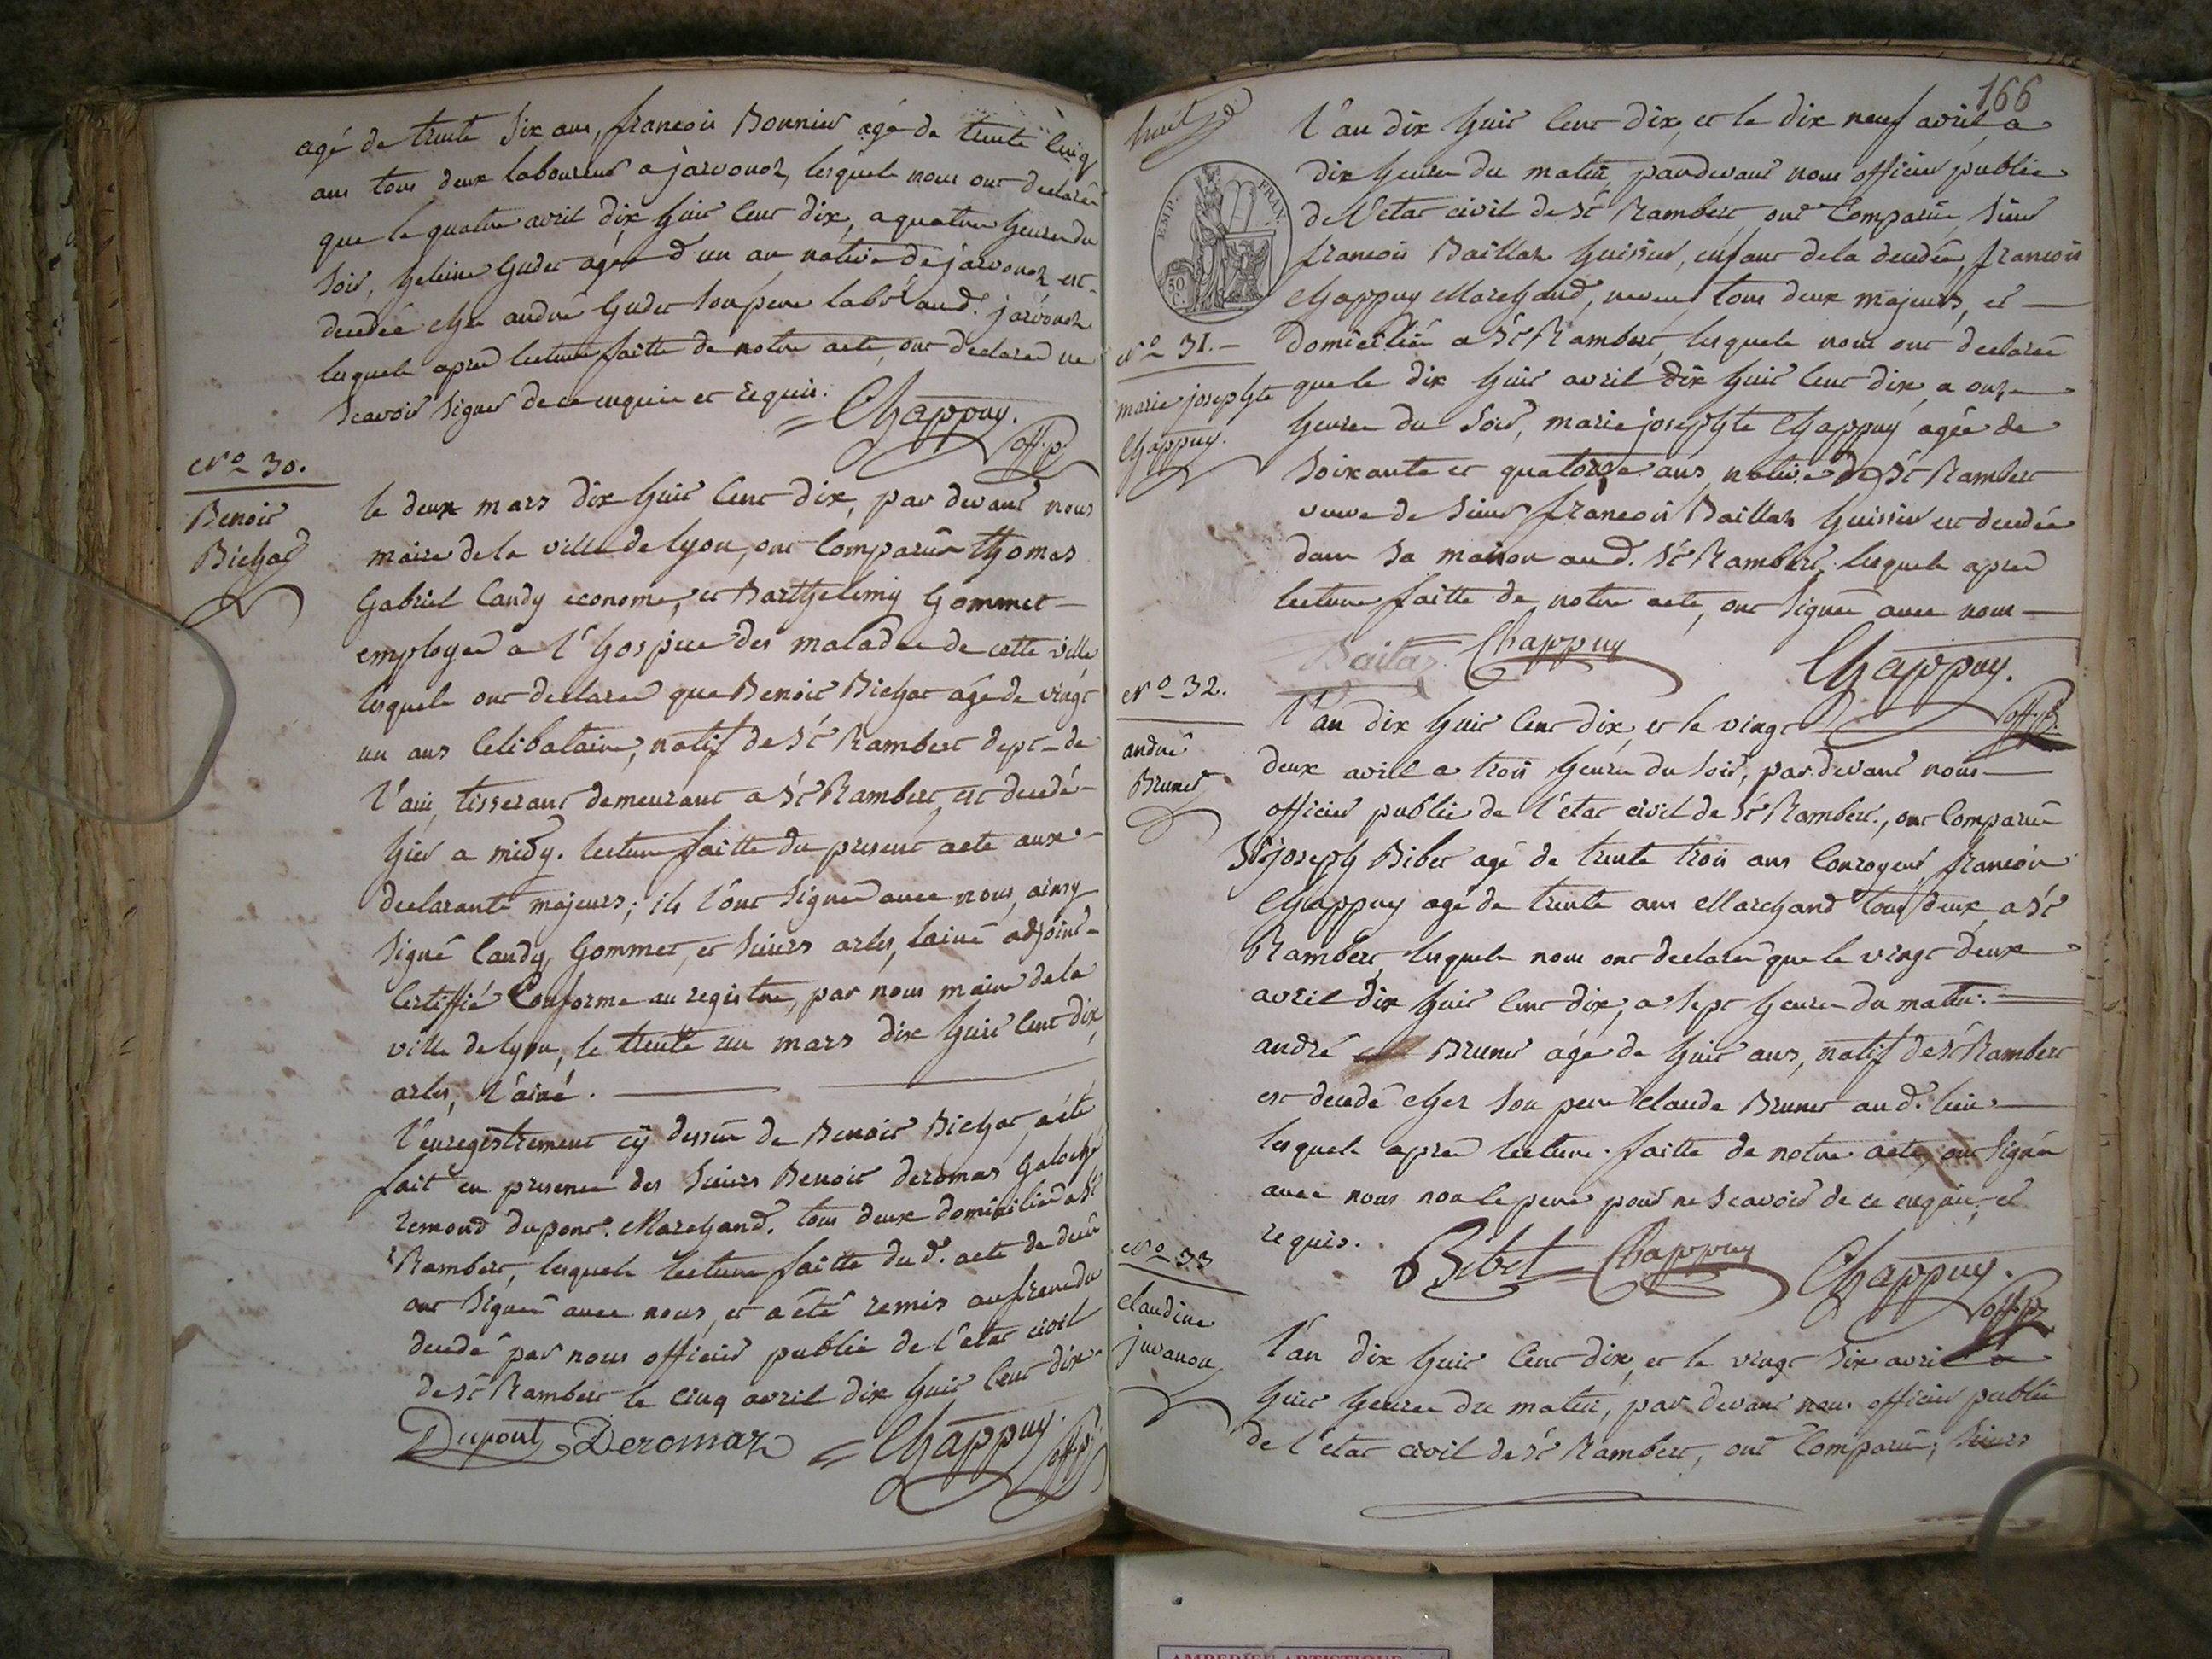 agé de trente Six ans, francois Bonnier agé de trente Cinq
ans tous deux laboureurs a javornoz, lesquels nous ont declarés
que le quatre avril dix huit Cent dix, a quatre heures du
Soir, heleine Gudet agée d'un an native de javornoz est
decedée chez andré Gudet Son pere labr. aud. javornoz
lesquels apres lecture faitte de notre acte, ont declarés ne
Scavoir Signer de ce enquis et requis.
Chappuy.
off. p.
No 30.
Benoit
Bichat
le deux mars dix huit Cent dix, par devant nous
maire de la ville de lyon, ont Comparûs thomas
Gabriel Candy econome, et Barthelemy Gommet
employés a l'hospice des malades de cette ville
lesquels ont declarés que Benoit Bichat agé de vingt
un ans Celibataire, natif de St Rambert dept de
l'ain, tisserant demeurant a St Rambert, est decedé
hier a midy. lecture faitte du présent acte aux
declarants majeurs; ils l'ont Signés avec nous, ainsy
Signé Candy, Gommet, et Sieurs arles, lainé adjoint
Certiffié Conforme au registre, par nous maire de la
ville de lyon, le trente un mars dix huit Cent dix,
arles, l'ainé.
l'enregistrement cÿ dessus de Benoit Bichat, a été
fait en presence des Sieurs Benoit deromas
remond dupont. Marchand. tous deux domiciliés a St
Rambert, lesquels lecture faitte dud. acte de decés
ont Signés avec nous, et a été remis au frere du
decedé par nous officier public de l'état civil
de St Rambert le cinq avril dix huit Cent dix.
Dupont Deromaz Chappuy.
off. p.
166
huit
EMP. FRAN.
50 C.
l'an dix huit Cent dix, et le dix neuf avril a
dix heures du matin pardevant nous officier public
de l'état civil de St Rambert, ont Comparûs, Sieur
francois Baillaz huissier, enfant de la decedée, francois
Chappuy Marchand, neveu, tous deux majeurs, et
No 31.
domiciliés a St Rambert, lesquels nous ont declarés
marie josephte
Chappuy.
que le dix huit avril dix huit Cent dix a onze
heures du Soir, marie josephte Chappuy agée de
Soixante et quatorze ans native de St Rambert
veuve de Sieur francois Baillaz huissier est decedée
dans Sa maison aud. St Rambert, lesquels apres
lecture faitte de notre acte, ont Signés avec nous
Bailaz. Chappuy Chappuy.
off. p.
No 32.
andré
Brunet
l'an dix huit Cent dix, et le vingt
deux avril a trois heures du Soir, par devant nous
officier public de l'état civil de St Rambert, ont Comparûs
Sr joseph Bibet agé de trente trois ans Conroyeur, francois
Chappuy agé de trente ans Marchand tous deux a St
Rambert lesquels nous ont declarés que le vingt deux
avril dix huit Cent dix, a Sept heures du matin.
andré Brunet agé de huit ans, natif de St Rambert
est decedé chez Son pere Claude Brunet aud. lieu
lesquels apres lecture faitte de notre acte, ont Signés
avec nous non le pere pour ne Scavoir de ce enquis et
requis.
Bibet Chappuy Chappuy.
off. p.
No 33
Claudine
juvanon
l'an dix huit Cent dix, et le vingt Six avril a
huit heures du matin, par devant nous officier public
de l'état civil de St Rambert, ont Comparûs, Sieurs